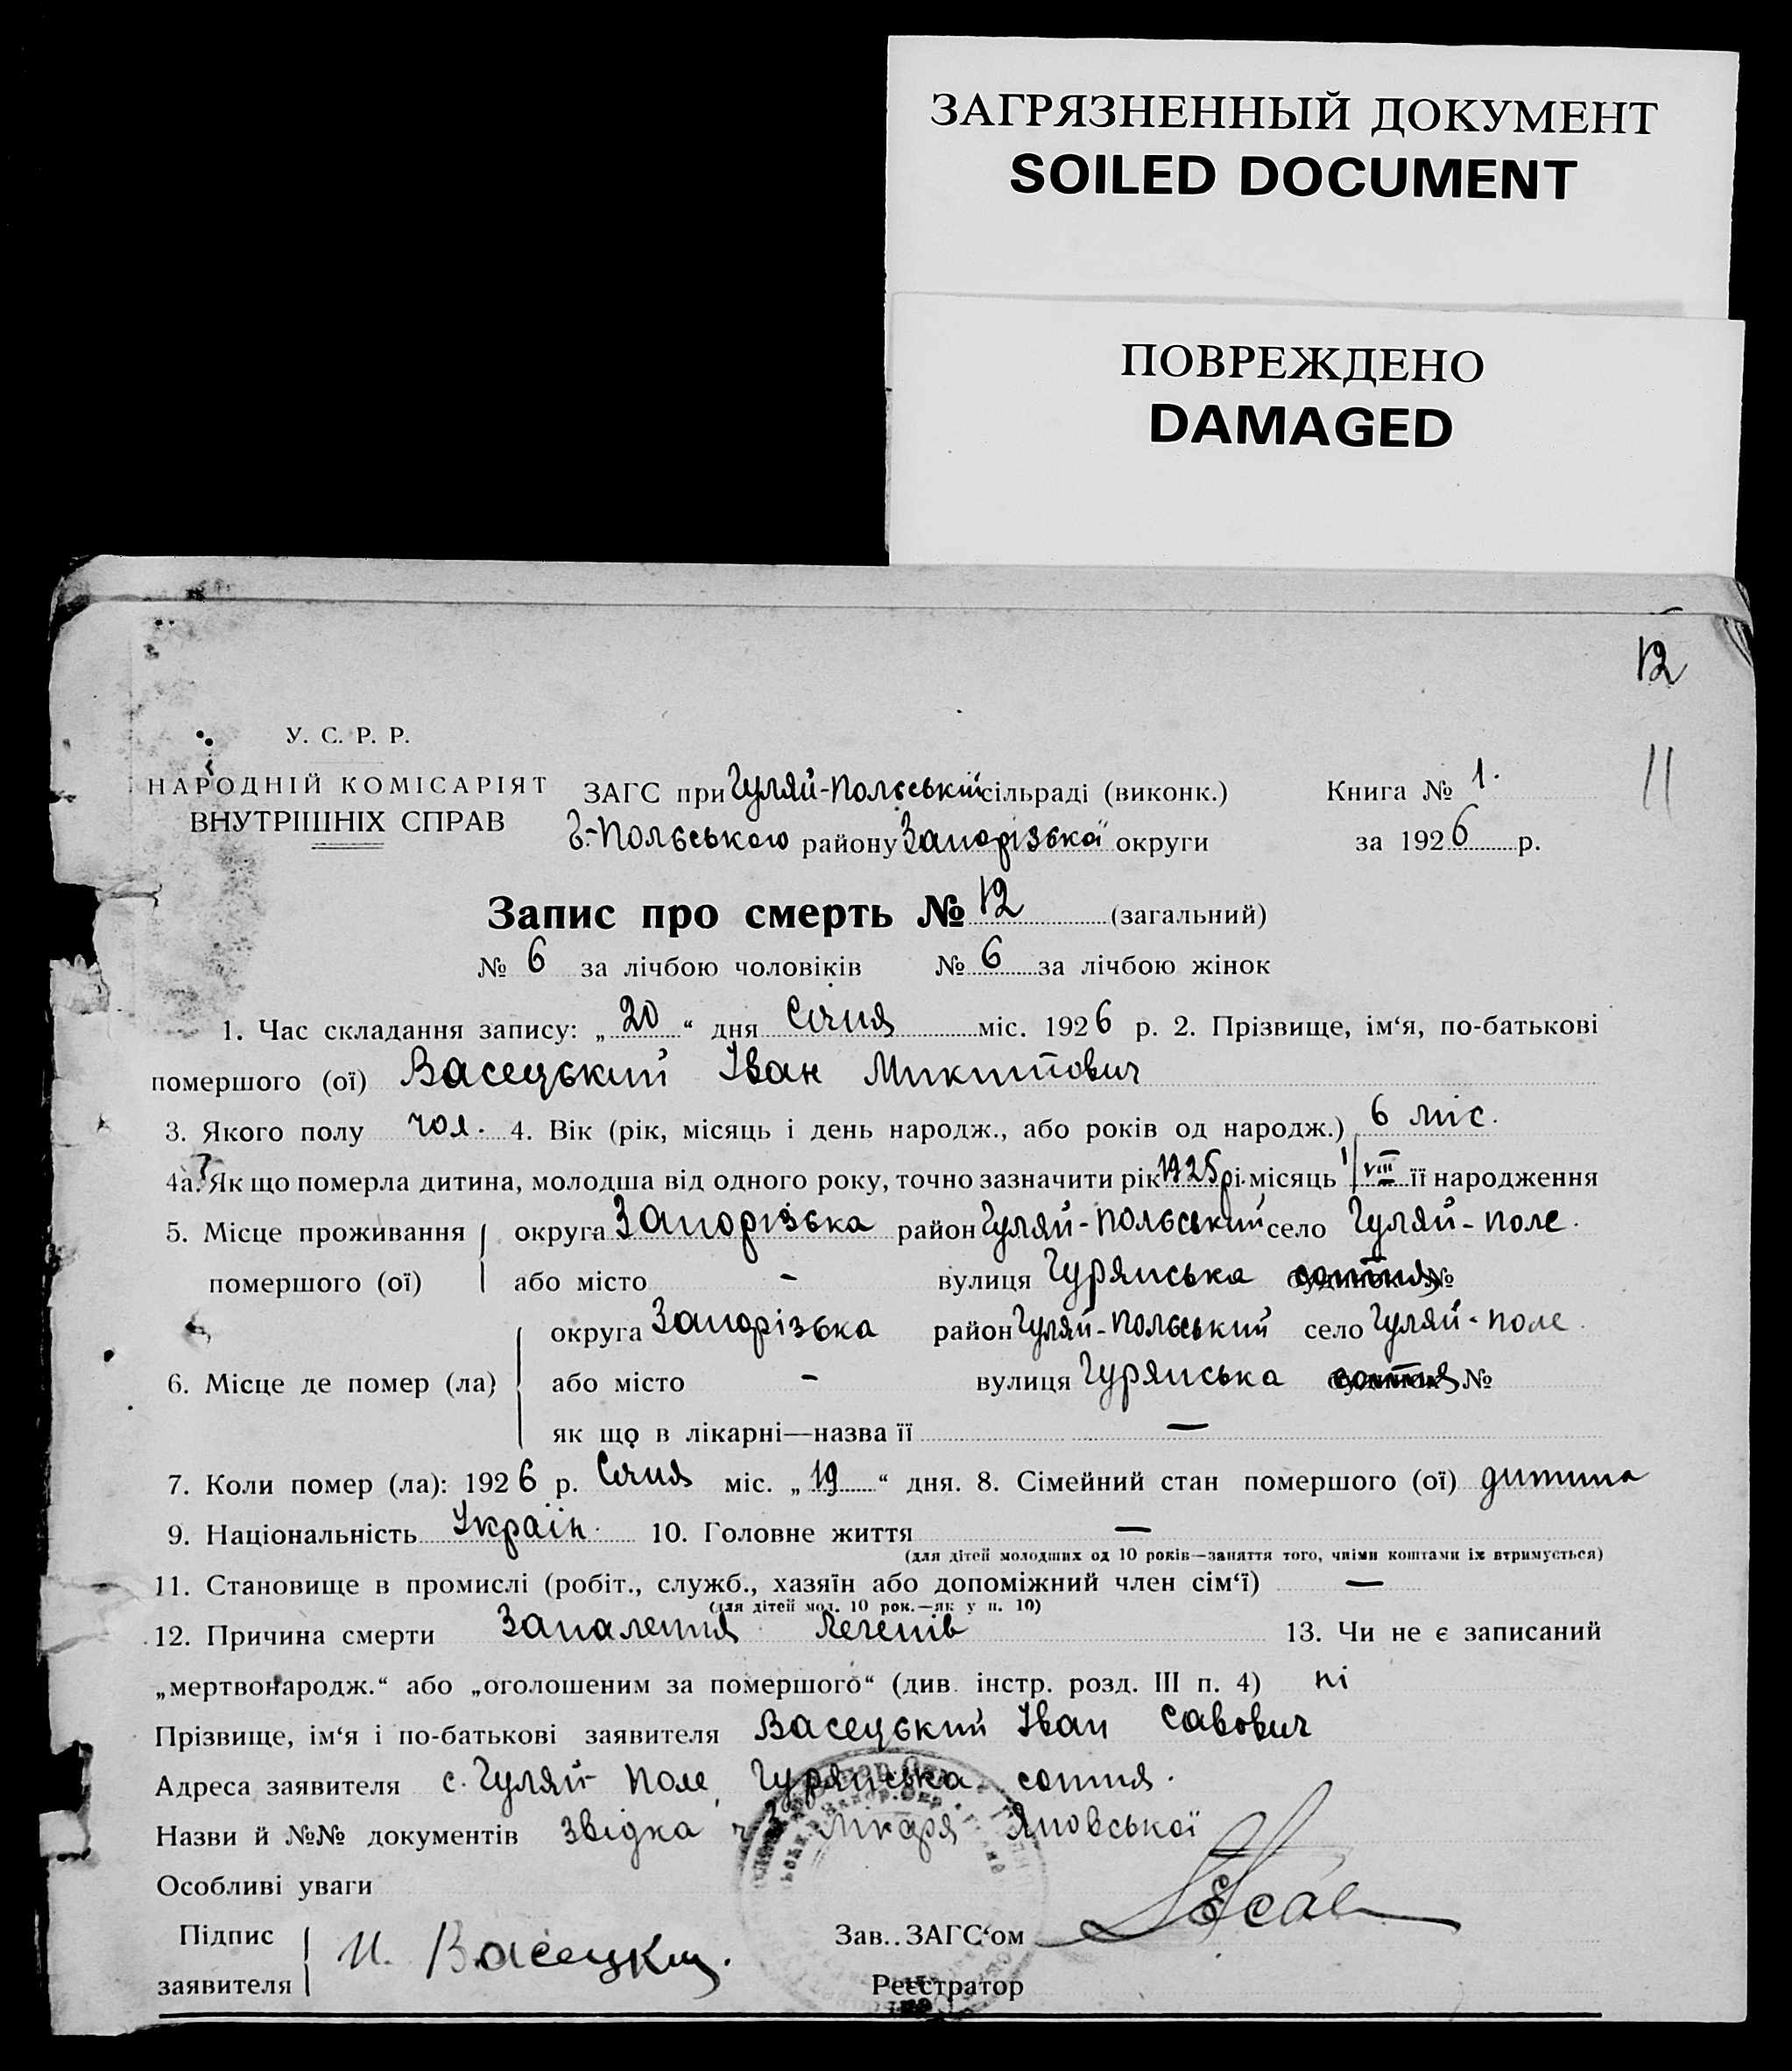 ЗАГРЯЗНЕННЫЙ ДОКУМЕНТ
SOILED DOCUMENT
ПОВРЕЖДЕНО
DAMAGED
12
11
У. С. Р. Р.
НАРОДНІЙ КОМІСАРІЯТ
ВНУТРІШНІХ СПРАВ
ЗАГС при Гуляй-Польський сільраді (виконк.)
Г.-Польського району Запорізької округи
Книга № 1.
за 1926 р.
Запис про смерть № 12 (загальний)
№ 6 за лічбою чоловіків № 6 за лічбою жінок
1. Час складання запису: „20“ дня Січня міс. 1926 р. 2. Прізвище, ім‘я, по-батькові
помершого (ої) Васецький Іван Микитович
3. Якого полу чол. 4. Вік (рік, місяць і день народж., або років од народж.) 6 міс.
4а. Як що померла дитина, молодша від одного року, точно зазначити рік 1925 рі місяць 1/VIII її народження
5. Місце проживання округа Запорізька район Гуляй-Польський село Гуляй-поле.
помершого (ої) або місто - вулиця Гурянська сотня №
округа Запорізька район Гуляй-Польський село Гуляй-поле.
6. Місце де помер (ла) або місто - вулиця Гурянська сотня №
як що в лікарні—назва її —
7. Коли помер (ла): 1926 р. Січня міс. „19“ дня. 8. Сімейний стан помершого (ої) дитина
9. Національність Україн. 10. Головне життя —
(для дітей молодших од 10 років—заняття того, чиїми коштами їх втримується)
11. Становище в промислі (робіт., служб., хазяїн або допоміжний член сім‘ї) —
(для дітей мол. 10 рок.—як у п. 10)
12. Причина смерти Запалення Легенів 13. Чи не є записаний
„мертвонародж.“ або „оголошеним за помершого“ (див. інстр. розд. III п. 4) ні
Прізвище, ім‘я і по-батькові заявителя Васецький Іван Савович
Адреса заявителя с. Гуляй-Поле, Гурянська сотня.
Назви й №№ документів звідка лікаря Яновської
Особливі уваги
Підпис
заявителя И. Васецкий.
Зав. ЗАГС‘ом
Реєстратор